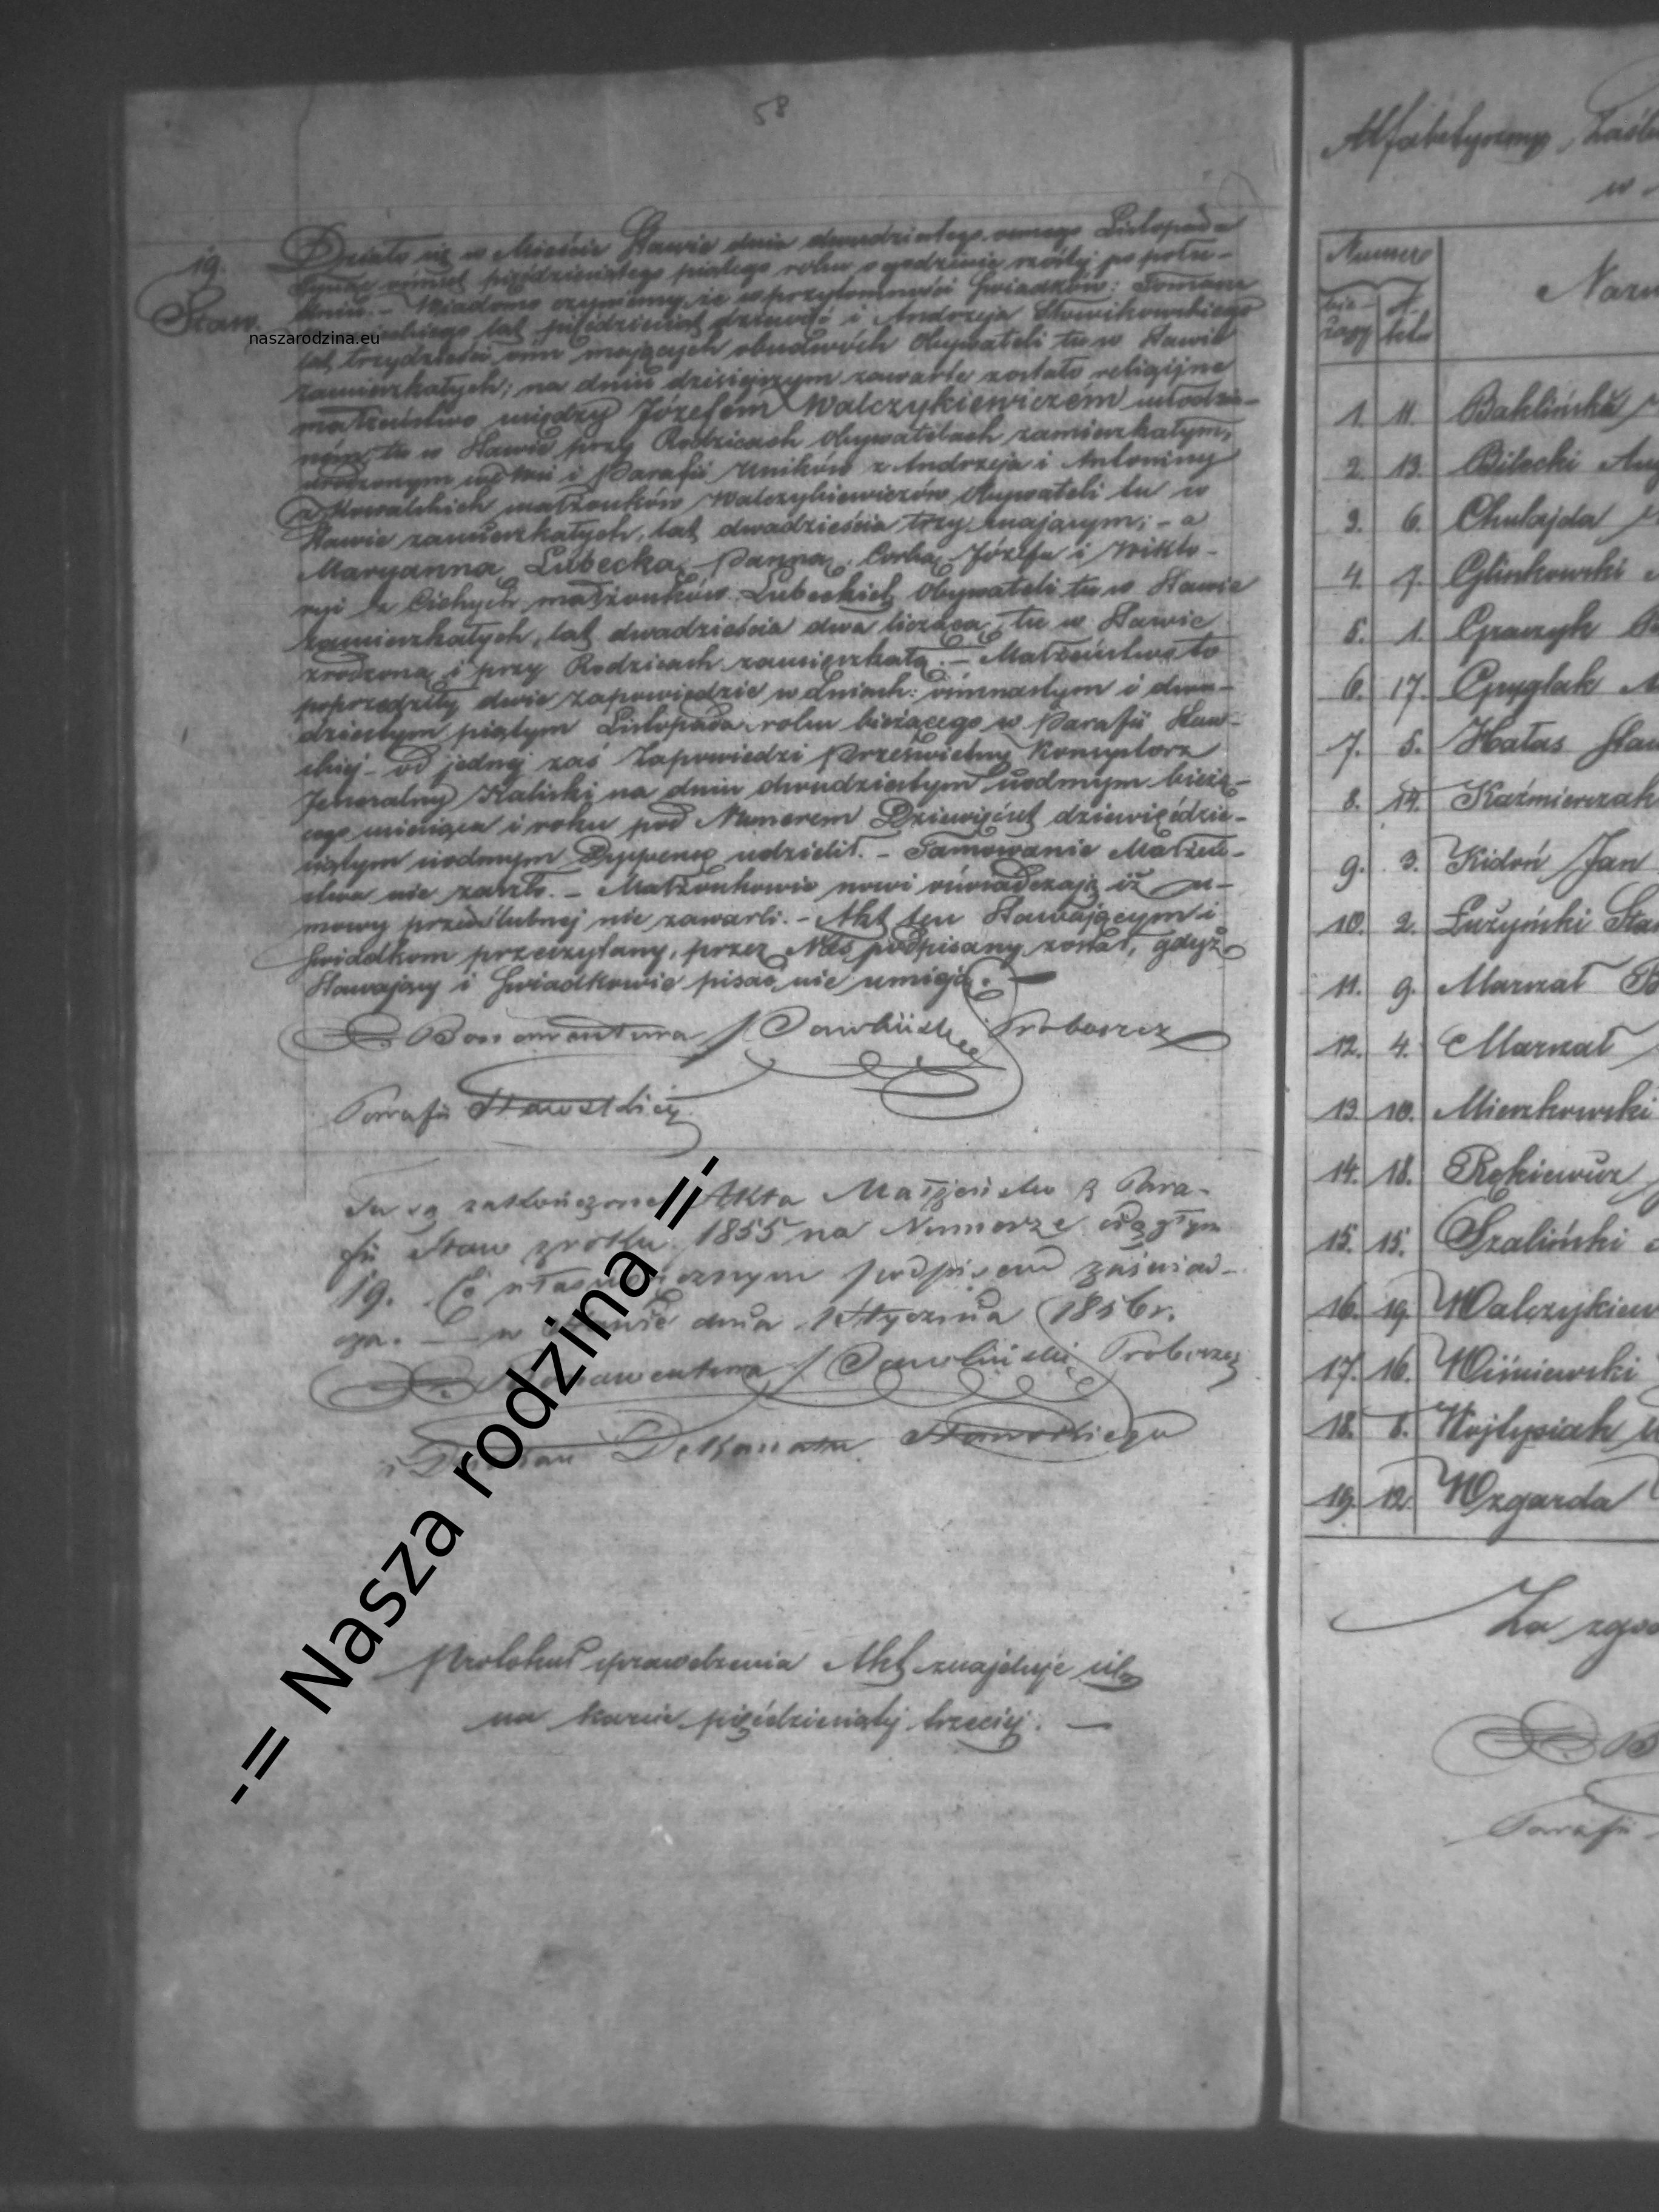 58
19.
Staw
Działo się w Mieście Stawie dnia dwudziestego osmego Listopada
Tysiąc ośmset pięćdziesiątego piątego roku o godzinie szóstej po połu-
dniu. - Wiadomo czyniemy, że w przytomności Świadków: Tomasza
lat pięćdziesiąt dziewięć i Andrzeja Słowikowskiego
lat trzydzieści ośm mających obudwóch Obywateli tu w Stawie
zamieszkałych; na dniu dzisiejszym zawarte zostało religijne
małżeństwo między Józefem Walczykiewiczem młodzia-
nem, tu w Stawie przy Rodzicach Obywatelach zamieszkałym,
urodzonym we Wsi i Parafii Uników z Andrzeja i Antoniny
z Kowalskich małżonków Walczykiewiczów Obywateli tu w
Stawie zamieszkałych, lat dwadzieścia trzy mającym; - a
Maryanną Lubecką, Panną, Córką Józefa i Wikto-
ryi z Cichych małżonków Lubeckich Obywateli tu w Stawie
zamieszkałych, lat dwadzieścia dwa liczącą, tu w Stawie
zrodzoną i przy Rodzicach zamieszkałą. - Małżeństwo to
poprzedziły dwie Zapowiedzie w dniach: ośmnastym i dwu-
dziestym piątym Listopada roku bieżącego w Parafii Staw-
skiej - od jednej zaś Zapowiedzi Prześwietny Konsystorz
Jeneralny Kaliski na dniu dwudziestym siodmym bieżą-
cego miesiąca i roku pod Numerem Dziewięćset dziewięćdzie-
siątym siodmym Dyspensę udzielił. - Tamowanie Małżeń-
stwa nie zaszło. - Małżonkowie nowi oświadczają iż u-
mowy przedślubnej nie zawarli. - Akt ten Stawającym i
Świadkom przeczytany, przez Nas podpisany został, gdyż
Stawający i Świadkowie pisać nie umieją. -
X. Bonawentura Pawliński Proboszcz
Parafii Stawskiej
Tu są zakończone Akta Małżeństw z Para-
fii Staw z roku 1855 na Numerze ciągłym
19. Co własnoręcznym podpisem zaświad-
cza. - w Stawie dnia 1 Stycznia 1856 r.
X. Bonawentura Pawliński Proboszcz
i Dziekan Dekanatu Stawskiego
Protokuł sprawdzenia Akt znajduje się
na karcie pięćdziesiątej trzeciej. -
Alfabetyczny
w
Numer
Aktu
1. 11. Bakliński
2. 13. Bilecki Aug
3. 6. Chulajda
4. 7. Glinkowski
5. 1. Graczyk
6. 17. Gryglak
7. 5. Hałas
8. 14. Kaźmierczak
9. 3. Kidoń Jan
10. 2. Łużyński Sta
11. 9. Marszał B
12. 4. Marszał
13. 10. Mieszkowski
14. 18. Rękiewicz
15. 15. Szaliński
16. 19. Walczykiew
17. 16. Wiśniewski
18. 8. Wojtysiak
19. 12. Wzgarda
Za zgod
X. B
Parafii
naszarodzina.eu
-= Nasza rodzina =-